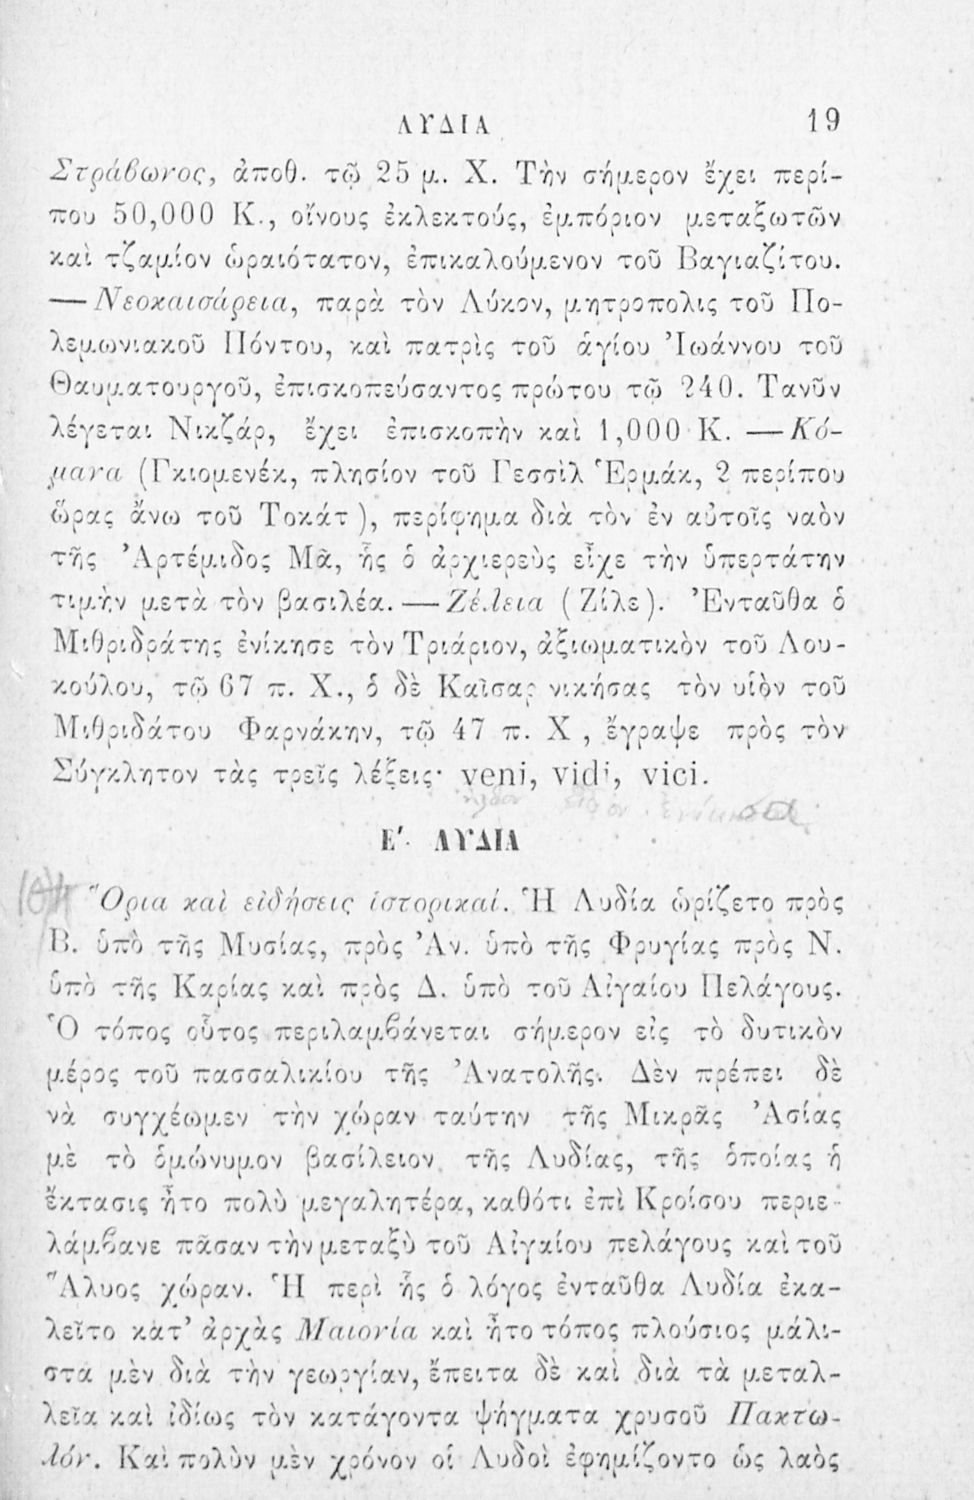 ΛΥΔΙΑ 19
Στράβωνος, ἀποθ. τῷ 25 μ. Χ. Τὴν σήμερον ἔχει περί-
που 50,000 Κ., οἴνους ἐκλεκτούς, ἐμπόριον μεταξωτῶν
καὶ τζαμίον ὡραιότατον, ἐπικαλούμενον τοῦ Βαγιαζίτου.
— Νεοκαισάρεια, παρὰ τὸν Λύκον, μητροπολις τοῦ Πο-
λεμωνιακοῦ Πόντου, καὶ πατρὶς τοῦ ἁγίου Ἰωάννου τοῦ
Θαυματουργοῦ, ἐπισκοπεύσαντος πρώτου τῷ 240. Τανῦν
λέγεται Νικζάρ, ἔχει ἐπισκοπὴν καὶ 1,000 Κ. — Κό-
μανα (Γκιομενέκ, πλησίον τοῦ Γεσσὶλ Ἑρμάκ, 2 περίπου
ὥρας ἄνω τοῦ Τοκάτ), περίφημα διὰ τὸν ἐν αὐτοῖς ναὸν
τῆς Ἀρτέμιδος Μᾶ, ἧς ὁ ἀρχιερεὺς εἶχε τὴν ὑπερτάτην
τιμὴν μετὰ τὸν βασιλέα. — Ζέλεια (Ζίλε). Ἐνταῦθα ὁ
Μιθριδράτης ἐνίκησε τὸν Τριάριον, ἀξιωματικὸν τοῦ Λου-
κούλου, τῷ 67 π. Χ., ὁ δὲ Καῖσαρ νικήσας τὸν υἱὸν τοῦ
Μιθριδάτου Φαρνάκην, τῷ 47 π. Χ, ἔγραψε πρὸς τὸν
Σύγκλητον τὰς τρεῖς λέξεις· veni, vidi, vici.
Ε΄. ΛΥΔΙΑ
Ὅρια καὶ εἰδήσεις ἱστορικαί. Ἡ Λυδία ὡρίζετο πρὸς
Β. ὑπὸ τῆς Μυσίας, πρὸς Ἀν. ὑπὸ τῆς Φρυγίας πρὸς Ν.
ὑπὸ τῆς Καρίας καὶ πρὸς Δ. ὑπὸ τοῦ Αἰγαίου Πελάγους.
Ὁ τόπος οὗτος περιλαμβάνεται σήμερον εἰς τὸ δυτικὸν
μέρος τοῦ πασσαλικίου τῆς Ἀνατολῆς. Δὲν πρέπει δὲ
νὰ συγχέωμεν τὴν χώραν ταύτην τῆς Μικρᾶς Ἀσίας
μὲ τὸ ὁμώνυμον βασίλειον τῆς Λυδίας, τῆς ὁποίας ἡ
ἔκτασις ἦτο πολὺ μεγαλητέρα, καθότι ἐπὶ Κροίσου περιε-
λάμβανε πᾶσαν τὴν μεταξὺ τοῦ Αἰγαίου πελάγους καὶ τοῦ
Ἅλυος χώραν. Ἡ περὶ ἧς ὁ λόγος ἐνταῦθα Λυδία ἐκα-
λεῖτο κατ' ἀρχὰς Μαιονία καὶ ἦτο τόπος πλούσιος μάλι-
στα μὲν διὰ τὴν γεωργίαν, ἔπειτα δὲ καὶ διὰ τὰ μεταλ-
λεῖα καὶ ἰδίως τὸν κατάγοντα ψήγματα χρυσοῦ Πακτω-
λόν. Καὶ πολὺν μὲν χρόνον οἱ Λυδοὶ ἐφημίζοντο ὡς λαὸς